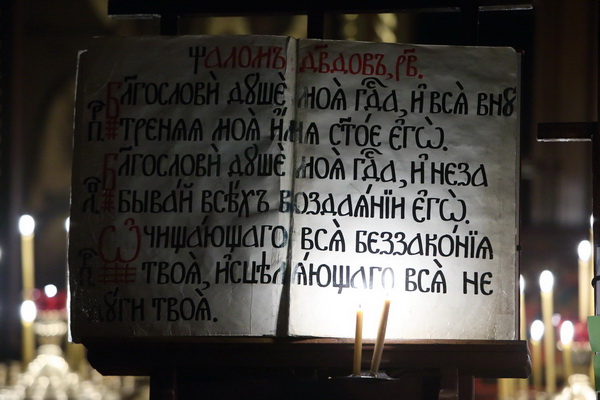 Ѱаломъ дв҃довъ, рв҃.
Бл҃гослови́ дꙋшѐ моѧ̀ гдⷭ҇а, и҆ всѧ̑ внꙋ
тренѧѧ моѧ̑ и҆́мѧ ст҃ое є҆гѡ̀.
Бл҃гослови́ дꙋшѐ моѧ̀ гдⷭ҇а, и҆ неза
быва́й всѣ́хъ возда́ѧнїи є҆гѡ̀.
Ѡ҆чища́ющаго всѧ̑ беззакѡ́нїѧ
твоѧ̑, и҆сцѣлѧ́ющаго всѧ̑ не
дꙋ́ги твоѧ̑.